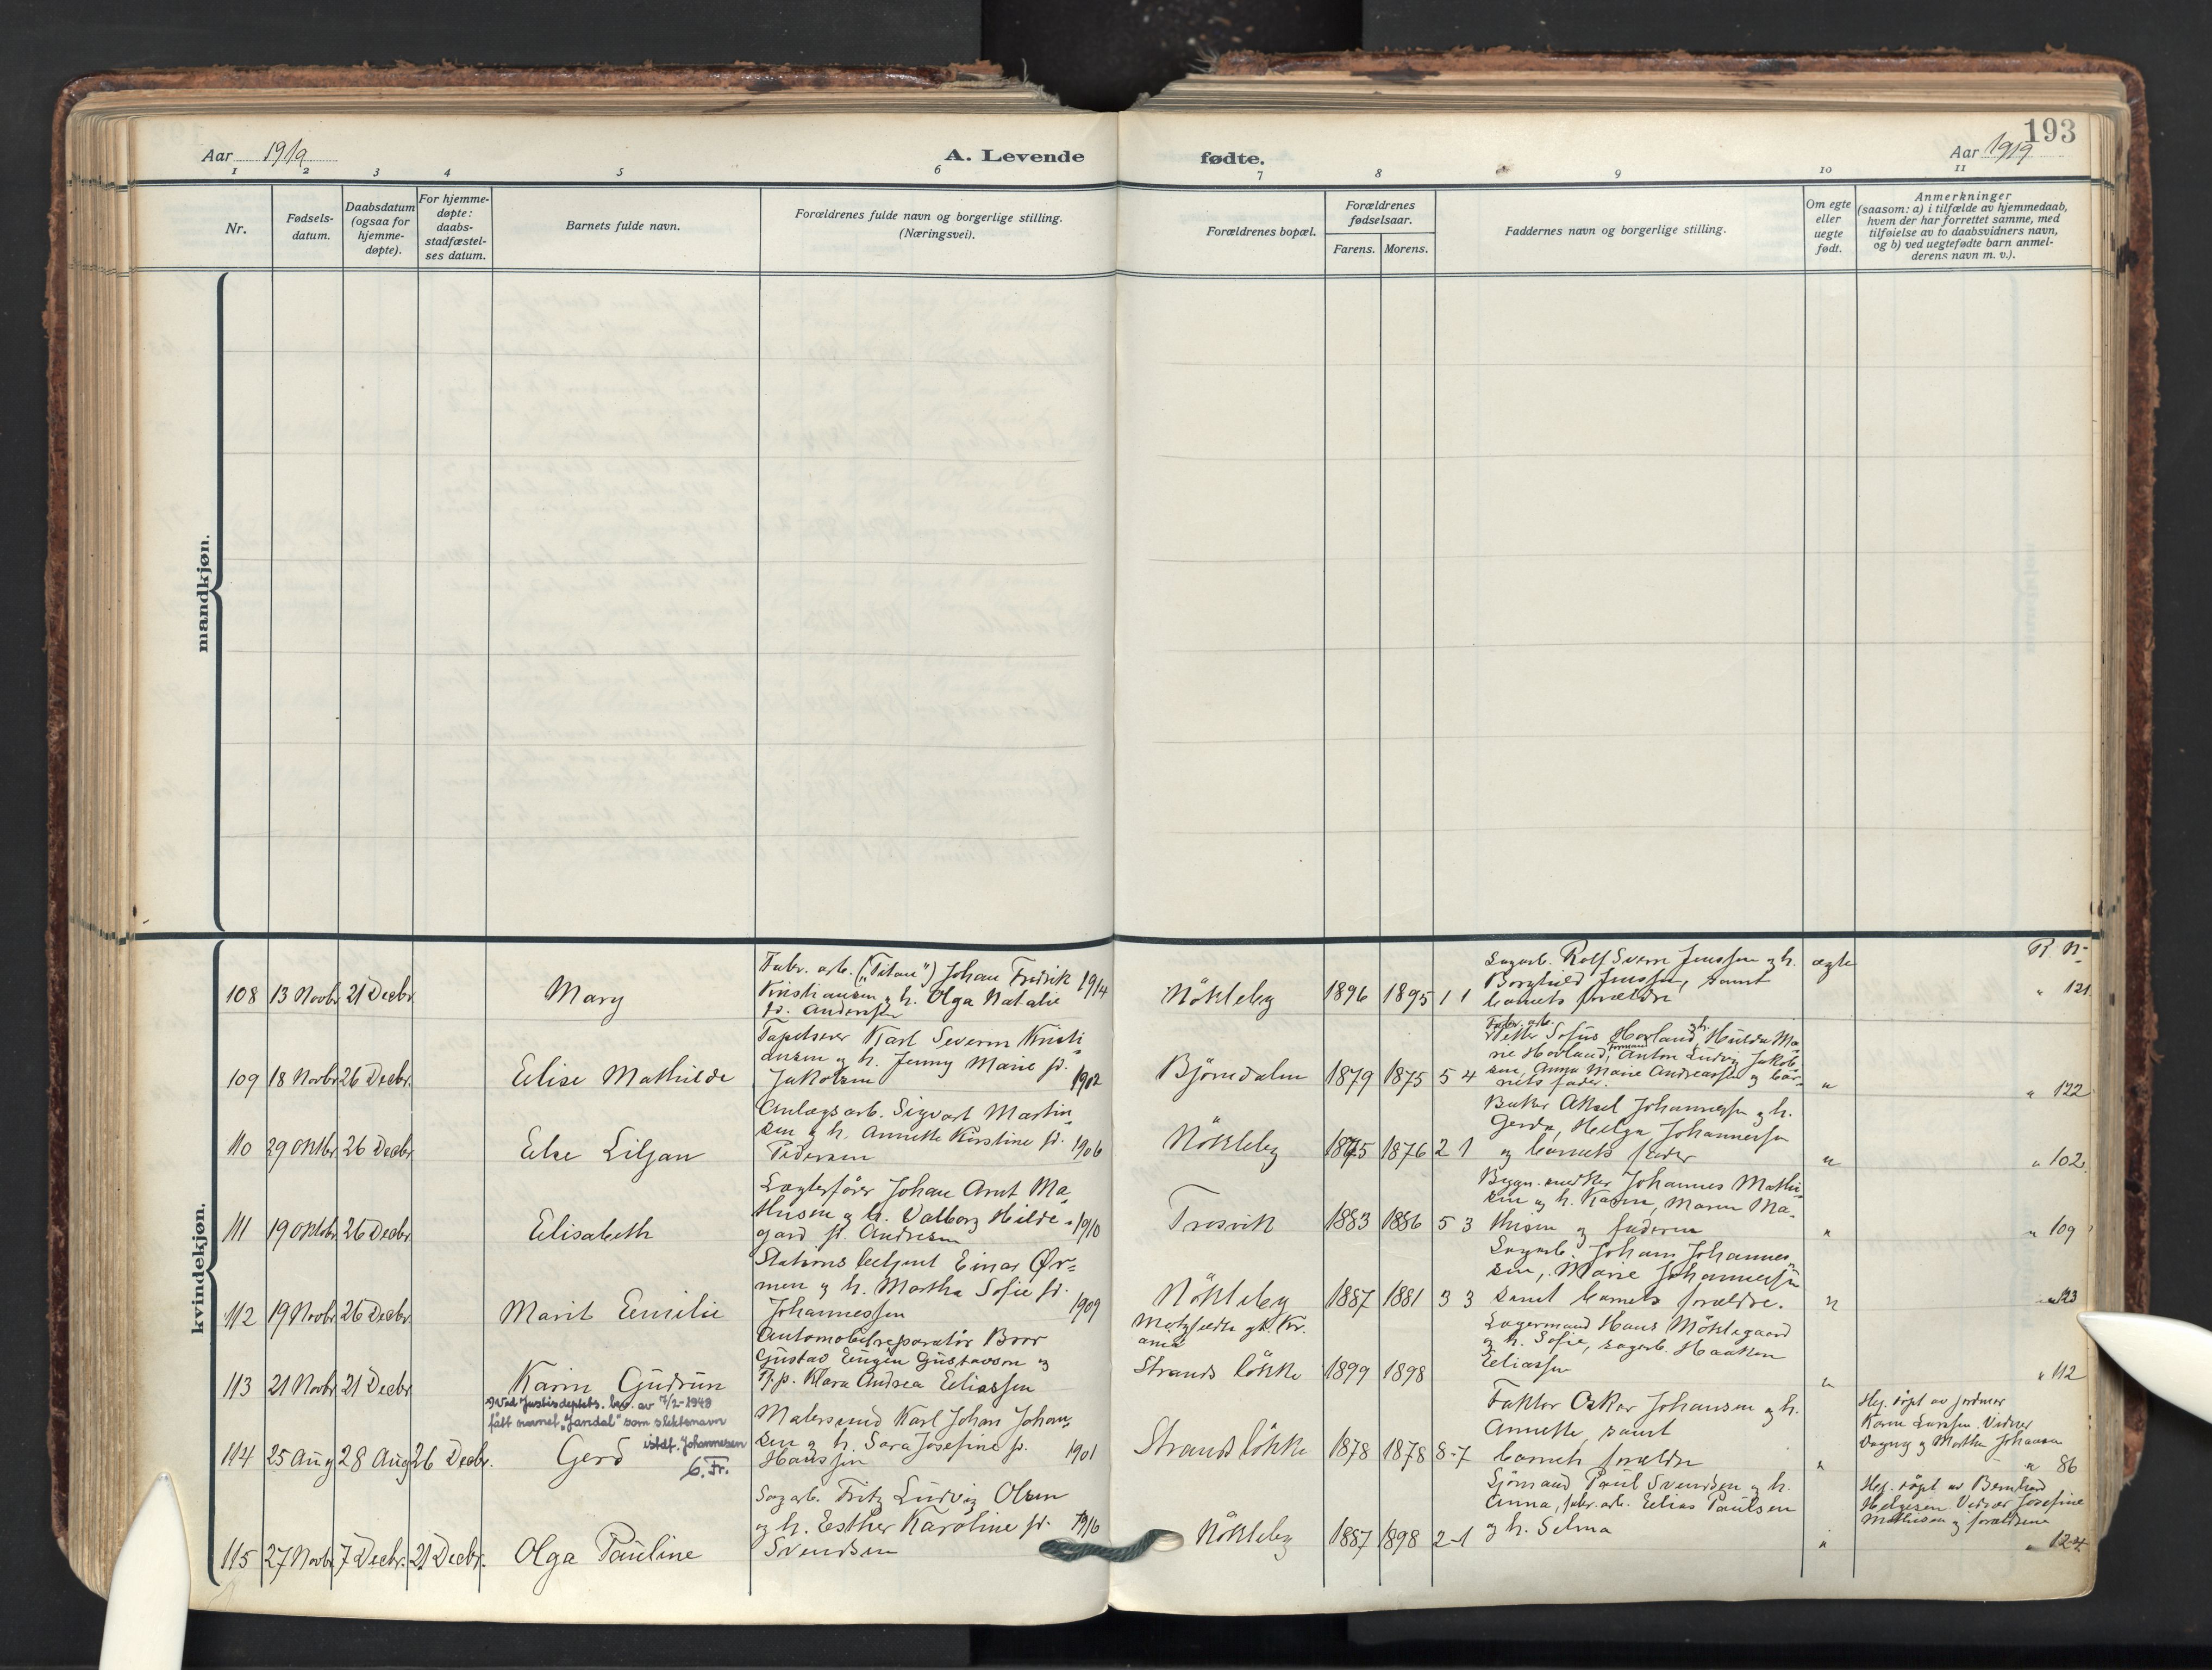 193
Aar 1919
A. Levende
fødte.
Aar 1919
1 2 3 4 5 6 7 8 9 10 11
Nr.
Fødsels-
datum.
Daabsdatum
(ogsaa for
hjemme-
døpte).
For hjemme-
døpte:
daabs-
stadfæstel-
ses datum.
Barnets fulde navn.
Forældrenes fulde navn og borgerlige stilling.
(Næringsvei).
Forældrenes bopæl.
Forældrenes
fødselsaar.
Farens. Morens.
Faddernes navn og borgerlige stilling.
Om egte
eller
uegte
født.
Anmerkninger
(saasom: a) i tilfælde av hjemmedaab,
hvem der har forrettet samme, med
tilføielse av to daabsvidners navn,
og b) ved uegtefødte barn anmel-
derens navn m. v.).
mandkjøn.
kvindekjøn.
108 13 Novbr 21 Decbr. Mary
Fabr. arb. ("Titan") Johan Fredrik 1914
Kristiansen og h. Olga Natalie
fd. Andersen
Nökleby 1896 1895 1 1
Sagarb. Rolf Sverre Jenssen og h.
Borghild Jenssen, samt
barnets forældre
egte
R. N.
" 121
109 18 Novbr 26 Decbr. Elise Mathilde
Tapetserer Karl Severin Kristi
ansen og h. Jenny Marie fd.
Jakobsen 1902
Björndalen 1879 1875 5 4
Fabr. arb.
Petter Sofus Hovland og h. Hulda Ma-
rie Hovland, Formand Anton Ludvig Jakob-
sen, Anna Marie Andreassen og bar-
nets fader.
" " 122
110 29 Oktbr 26 Decbr. Else Liljan
Anlægsarb. Sigvart Martin
sen og h. Annette Kirstine fd. 1906
Pedersen
Nökleby 1875 1876 2 1
Baker Aksel Johannessen og h.
Gerda, Helga Johannessen
og barnets fader
" " 102
111 19 Oktbr 26 Decbr. Elisabeth
Lægterfører Johan Arnt Ma
thisen og h. Valborg Hilde- 1910
gard fd. Andresen
Trosvik 1883 1886 5 3
Bygn. snedker Johannes Mathi-
sen og h. Karen, Maren Ma-
thisen og faderen
" " 109
112 19 Novbr 26 Decbr. Marit Emilie
Stationsbetjent Einar Ør=
men og h. Martha Sofie fd.
Johannessen 1909
Nökleby 1887 1881 3 3
Sagarb. Johan Johannes
sen, Marie Johannessen
samt barnets forældre.
" " 123
113 21 Novbr 21 Decbr Karin Gudrun
Automobilreparatör Bror
Gustav Eugen Gustavson og
Tj.p. Klara Andrea Eliassen
Strandslökke 1899 1898
Lagermand Hans Möklegaard
og h. Sofie, sagarb. Haakon
Eliassen
" " 112
Ved Justisdeptets. bev. av 7/2-1949
fått navnet "Jandal" som slektsnavn
istdf. Johannesen
6. Fr.
114 25 Aug 28 Aug 26 Decbr. Gerd
Malersvend Karl Johan Johan-
sen og h. Sara Josefine fd.
Hanssen 1901
Strandslökke 1878 1878 8-7
Faktor Oskar Johansen og h.
Annette, samt
barnets forældre
"
Hj. döpt av jordmor
Karen Larssen. Vidner
Dagny og Martha Johansen
" 86
115 27 Novbr 7 Decbr. 21 Decbr. Olga Pauline
Sagarb. Fritz Ludvig Olsen
og h. Esther Karoline fd. 1916
Svendsen
Nökleby 1887 1898 2-1
Sjömand Paul Svendsen og h.
Anna, fabr. arb. Elias Paulsen
og h. Selma
"
Hj. döpt av Bernhard
Helgesen. Vidner Josefine
Mathisen og forældrene
" 124